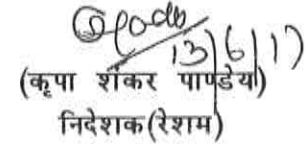 13/6/17
(कृपा शंकर पाण्डेय)
निदेशक(रेशम)